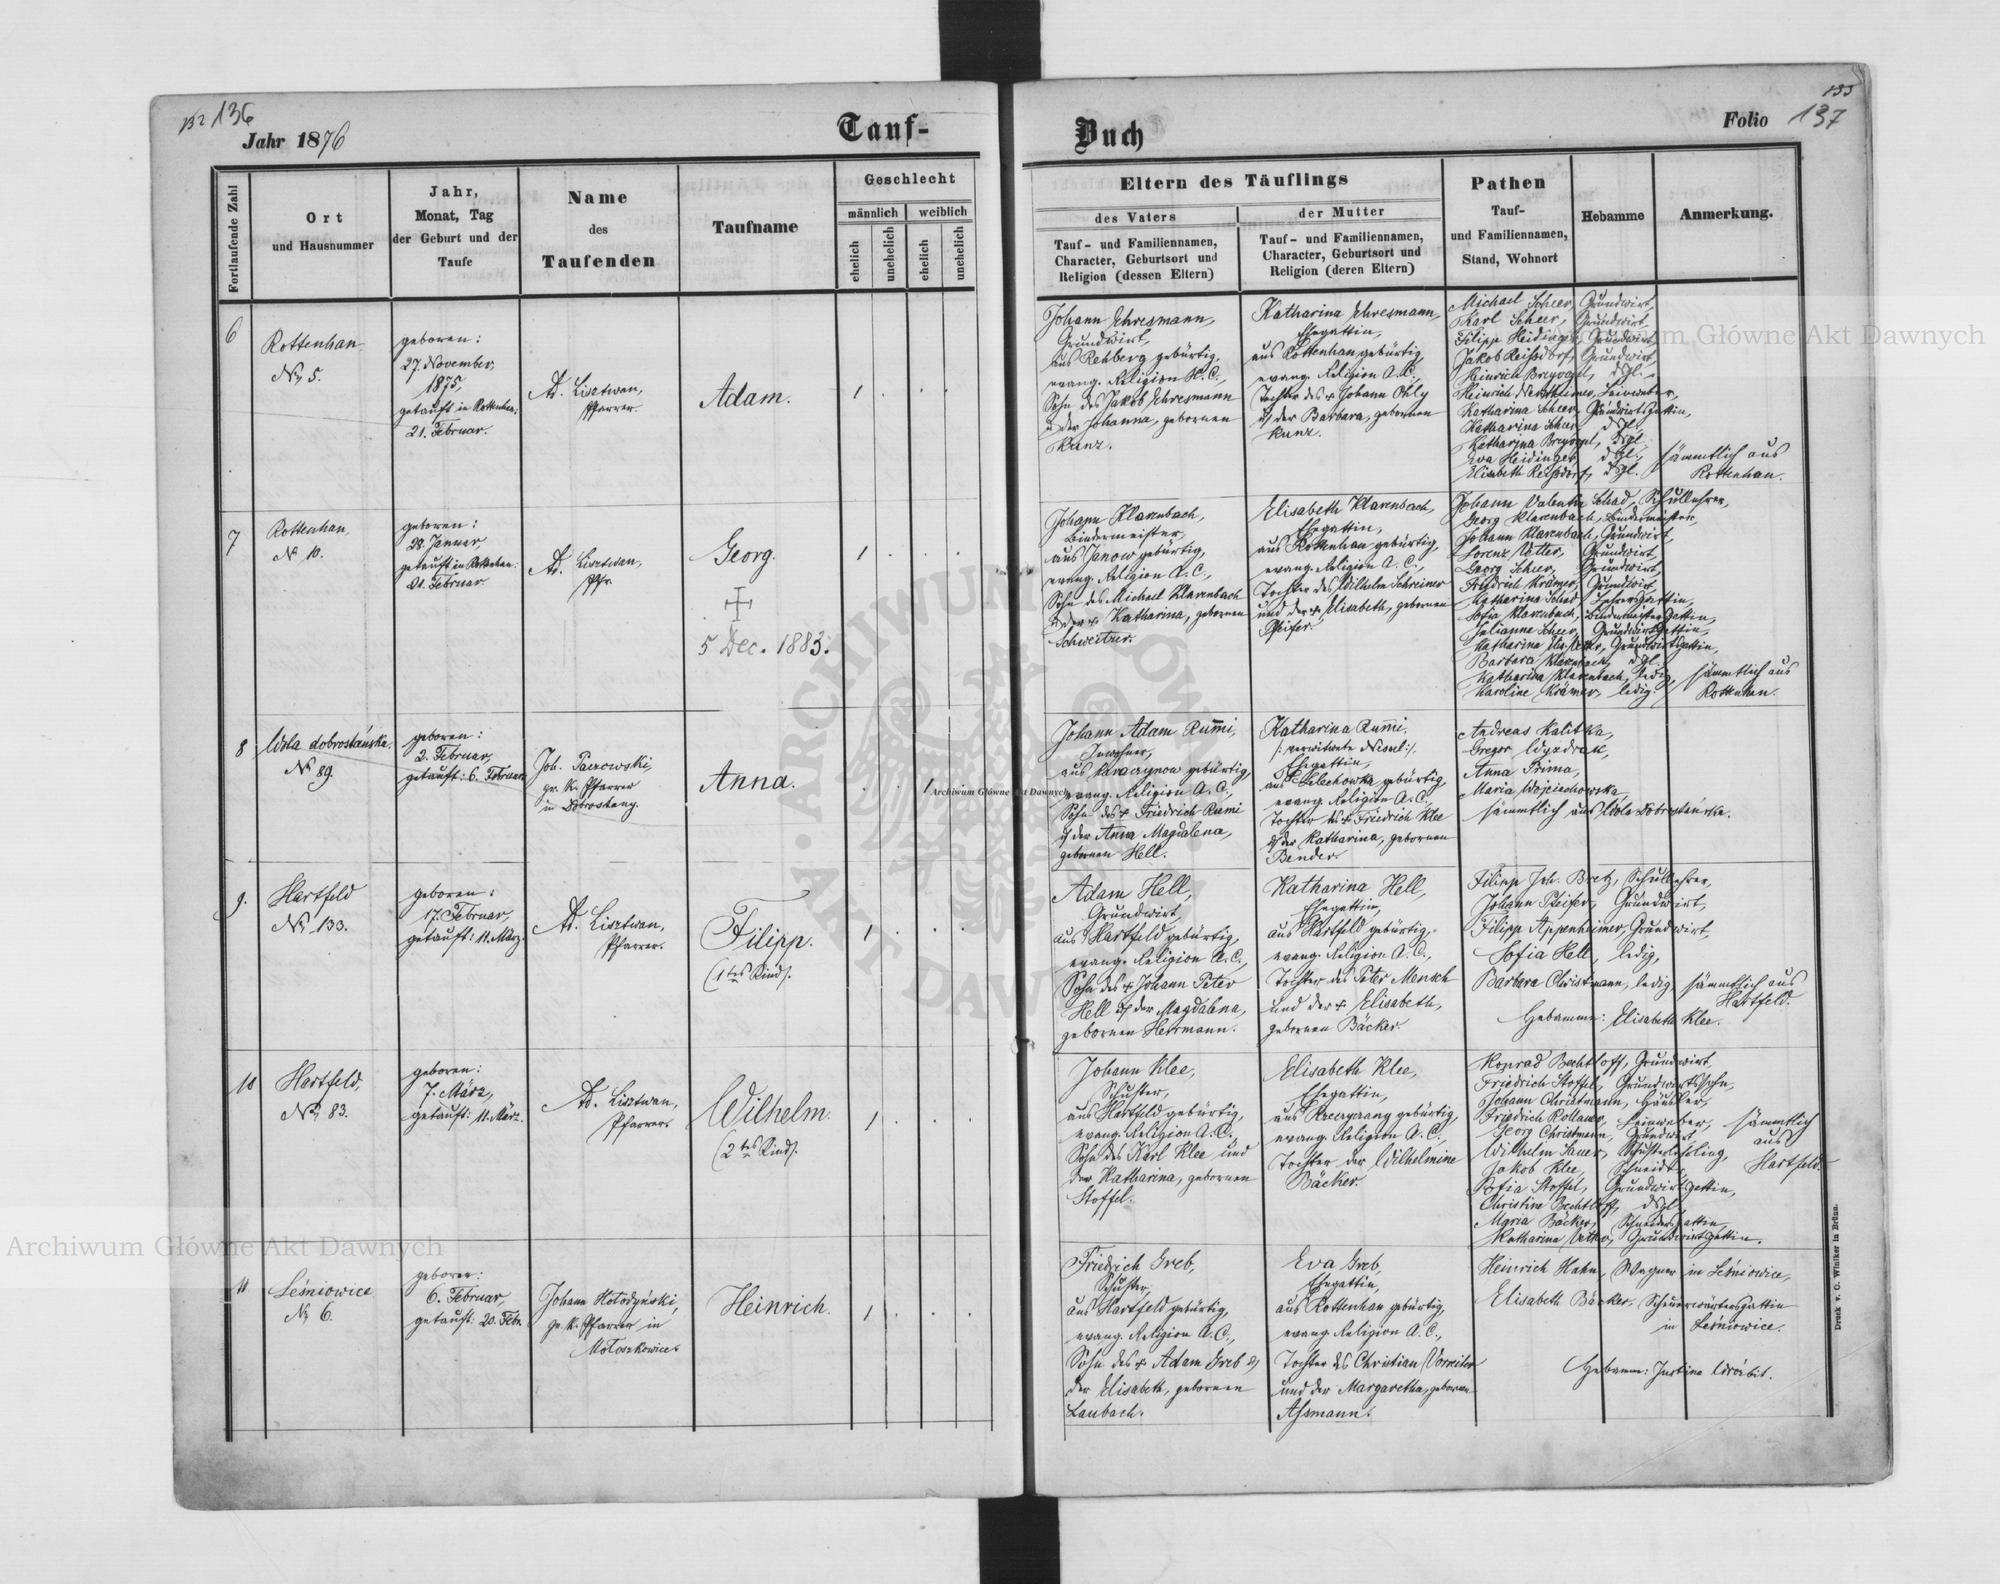 132 136
Jahr 1876
Tauf-
Fortlaufende Zahl
Ort
und Hausnummer
Jahr,
Monat, Tag
der Geburt und der
Taufe
Name
des
Taufenden
Taufname
Geschlecht
männlich
weiblich
ehelich
unehelich
ehelich
unehelich
6
Rottenhan
No 5.
geboren:
27. November,
1875,
getauft in Rottenhan:
21. Februar.
Ad. Lisztwan,
Pfarrer.
Adam.
1 . . .
7
Rottenhan,
No 10.
geboren:
28. Januar
getauft in Rottenhan:
21. Februar
Ad. Lisztwan,
Pfr.
Georg.
5 Dec. 1883.
1 . . .
8
Wola dobrostańska.
No 89.
geboren:
2. Februar,
getauft: 6. Februar.
Joh. Paczowski,
gr. k. Pfarrer
in Dobrostany.
Anna.
. . 1
9.
Hartfeld
No 133.
geboren:
17. Februar,
getauft: 11. März.
Ad. Lisztwan,
Pfarrer.
Filipp.
(1tes Kind).
1 . . .
10
Hartfeld,
No 83.
geboren:
7. März,
getauft: 11. März.
Ad. Lisztwan,
Pfarrer.
Wilhelm.
(2tes Kind).
1 . . .
11
Leśniowice
No 6.
geboren:
6. Februar,
getauft: 20. Febr.
Johann Hołodyński,
gr. k. Pfarrer in
Mołoszkowice.
Heinrich.
1 . . .
Buch
133
Folio 137
Eltern des Täuflings
des Vaters
der Mutter
Tauf- und Familiennamen,
Character, Geburtsort und
Religion (dessen Eltern)
Tauf- und Familiennamen,
Character, Geburtsort und
Religion (deren Eltern)
Pathen
Tauf-
und Familiennamen,
Stand, Wohnort
Hebamme
Anmerkung.
Johann Ehresmann,
Grundwirt,
aus Rehberg gebürtig,
evang. Religion H. C.,
Sohn des Jakob Ehresmann
u der Johanna, gebornen
Kunz.
Katharina Ehresmann,
Ehegattin,
aus Rottenhan gebürtig,
evang. Religion A. C.,
Tochter des + Johann Ohly
u der Barbara, gebornen
Kunz.
Michael Scheer, Grundwirt,
Karl Scheer, Grundwirt
Filipp Heidinger, Grundwirt
Jakob Reißdorf, Grundwirt
Heinrich Breyvogel, dßgl.
Heinrich Nerbheimer, Leinweber,
Katharina Scheer, Grundwirtsgattin,
Katharina Scheer, dßgl.
Katharina Breyvogel, dßgl.
Eva Heidinger, dßgl.
Elisabeth Reißdorf, dßgl.
sämmtlich aus
Rottenhan.
Johann Klarenbach,
Bindermeister,
aus Janow gebürtig,
evang. Religion A. C.,
Sohn des Michael Klarenbach
u der + Katharina, gebornen
Schweitzer.
Elisabeth Klarenbach,
Ehegattin,
aus Rottenhan gebürtig,
evang. Religion A. C.,
Tochter des Wilhelm Schreiner
und der + Elisabeth, gebornen
Pfeifer.
Johann Valentin Schad, Schullehrer,
Georg Klarenbach, Bindermeister,
Johann Klarenbach, Grundwirt,
Lorenz Vetter, Grundwirt
Georg Scheer, Grundwirt
Friedrich Krämer, Grundwirt
Katharina Schad, Lehrersgattin,
Sofia Klarenbach, Bindermeistersgattin,
Julianne Scheer, Grundwirtsgattin,
Katharina Vetter, Grundwirtsgattin,
Barbara Klarenbach, dßgl.
Katharina Klarenbach, ledig,
Karoline Krämer, ledig.
sämmtlich aus
Rottenhan.
Johann Adam Rumi,
Inwohner,
gebürtig,
evang. Religion A. C.,
Sohn des + Friedrich Rumi
u der Anna Magdalena,
gebornen Hell.
Katharina Rumi,
/: verwitwete :/,
Ehegattin,
aus Lelechowka gebürtig,
evang. Religion A. C.,
Tochter des + Friedrich Klee
u der Katharina, gebornen
Bender.
Andreas Kalitka,
Gregor
Anna Prima,
Maria Wojciechowska,
sämmtlich aus Wola dobrostańska.
Adam Hell,
Grundwirt,
aus Hartfeld gebürtig,
evang. Religion A. C.,
Sohn des + Johann Peter
Hell u der Magdalena,
gebornen Herrmann.
Katharina Hell,
Ehegattin,
aus Hartfeld gebürtig,
evang. Religion A. C.,
Tochter des Peter Mensch
und der + Elisabeth,
gebornen Bäcker.
Filipp Joh. Bretz, Schullehrer,
Johann Pfeifer, Grundwirt,
Filipp Appenheimer, Grundwirt,
Sofia Hell, ledig,
Barbara Christmann, ledig
sämmtlich aus
Hartfeld.
Hebamme: Elisabeth Klee.
Johann Klee,
Schuster,
aus Hartfeld gebürtig,
evang. Religion A. C.,
Sohn des Karl Klee und
der Katharina, gebornen
Stoffel.
Elisabeth Klee,
Ehegattin,
gebürtig,
evang. Religion A. C.,
Tochter der Wilhelmine
Bäcker.
Konrad Bechtloff, Grundwirt,
Friedrich Stoffel, Grundwirtssohn,
Johann Christmann, Häusler,
Friedrich Leinweber,
Georg Christmann, Grundwirt
Wilhelm Sauer, Schusterlehrling,
Jakob Klee, Schneider,
Sofia Stoffel, Grundwirtsgattin,
Christine Bechtloff, dßgl.
Maria Bäcker, Schneidersgattin,
Katharina Vetter, Grundwirtsgattin.
sämmtlich
aus
Hartfeld.
Friedrich Greb,
Schuster,
aus Hartfeld gebürtig,
evang. Religion A. C.,
Sohn des + Adam Greb u
der Elisabeth, gebornen
Laubach.
Eva Greb,
Ehegattin,
aus Rottenhan gebürtig,
evang. Religion A. C.,
Tochter des Christian Vorreiter
und der Margaretha, gebornen
Aßmann.
Heinrich Hahn, Wagner in Leśniowice,
Elisabeth Bäcker, Scheuerwärtersgattin
in Leśniowice.
Hebamme: Justina
Druck v. C. Winiker in Brünn.
Archiwum Główne Akt Dawnych
Archiwum Główne Akt Dawnych
Archiwum Główne Akt Dawnych